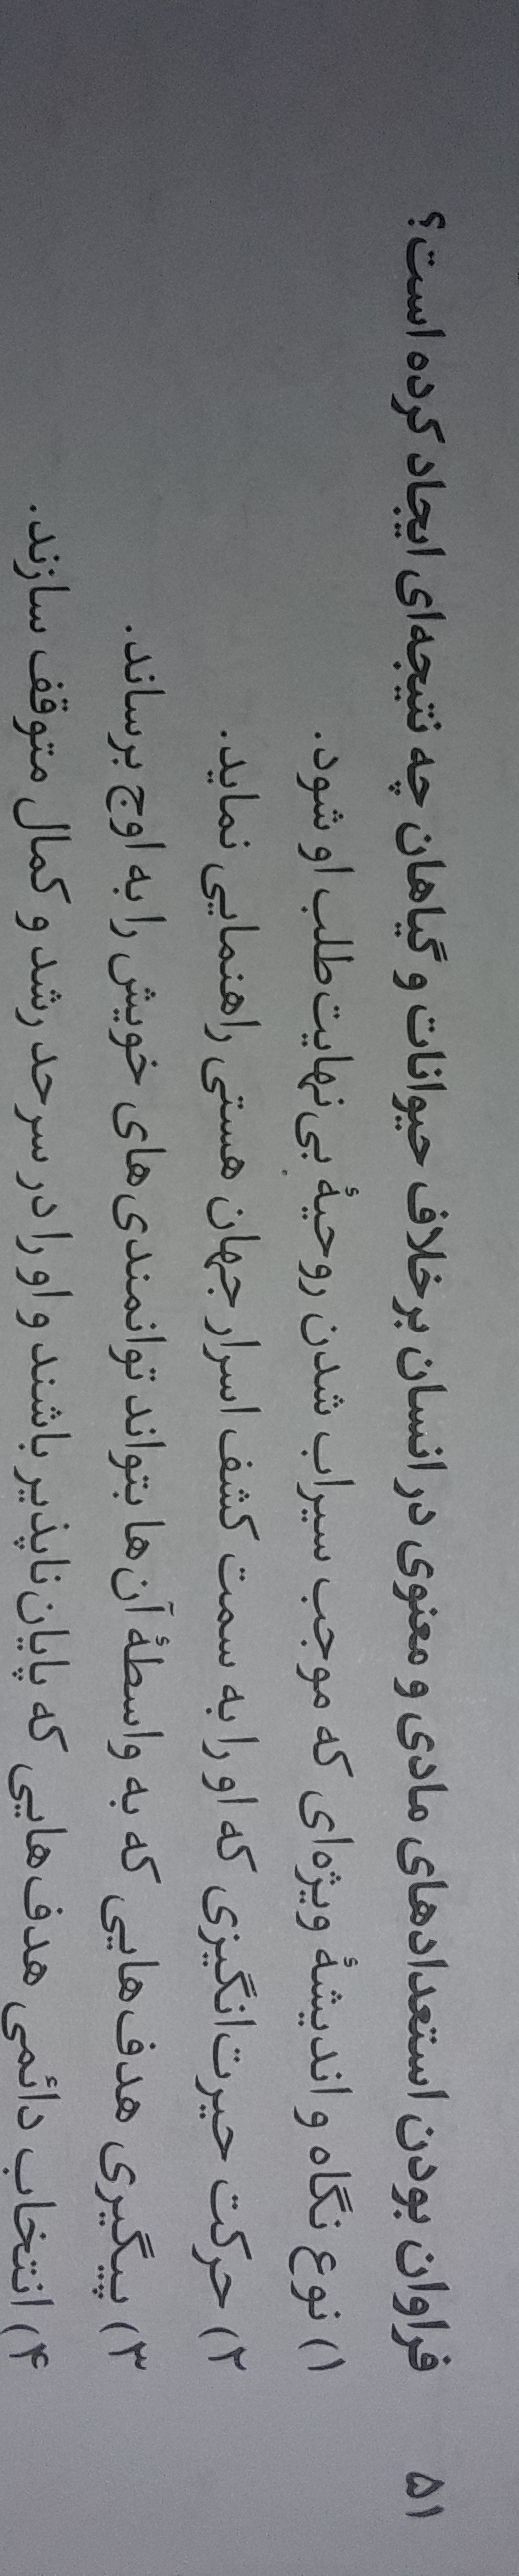 ۵۱ فراوان بودن استعدادهای مادی و معنوی در انسان برخلاف حیوانات و گیاهان چه نتیجه‌ای ایجاد کرده است؟
۱) نوع نگاه و اندیشۀ ویژه‌ای که موجب سیراب شدن روحیۀ بی‌نهایت‌طلب او شود.
۲) حرکت حیرت‌انگیزی که او را به سمت کشف اسرار جهان هستی راهنمایی نماید.
۳) پیگیری هدف‌هایی که به واسطۀ آن‌ها بتواند توانمندی‌های خویش را به اوج برساند.
۴) انتخاب دائمی هدف‌هایی که پایان‌ناپذیر باشند و او را در سرحد رشد و کمال متوقف سازند.